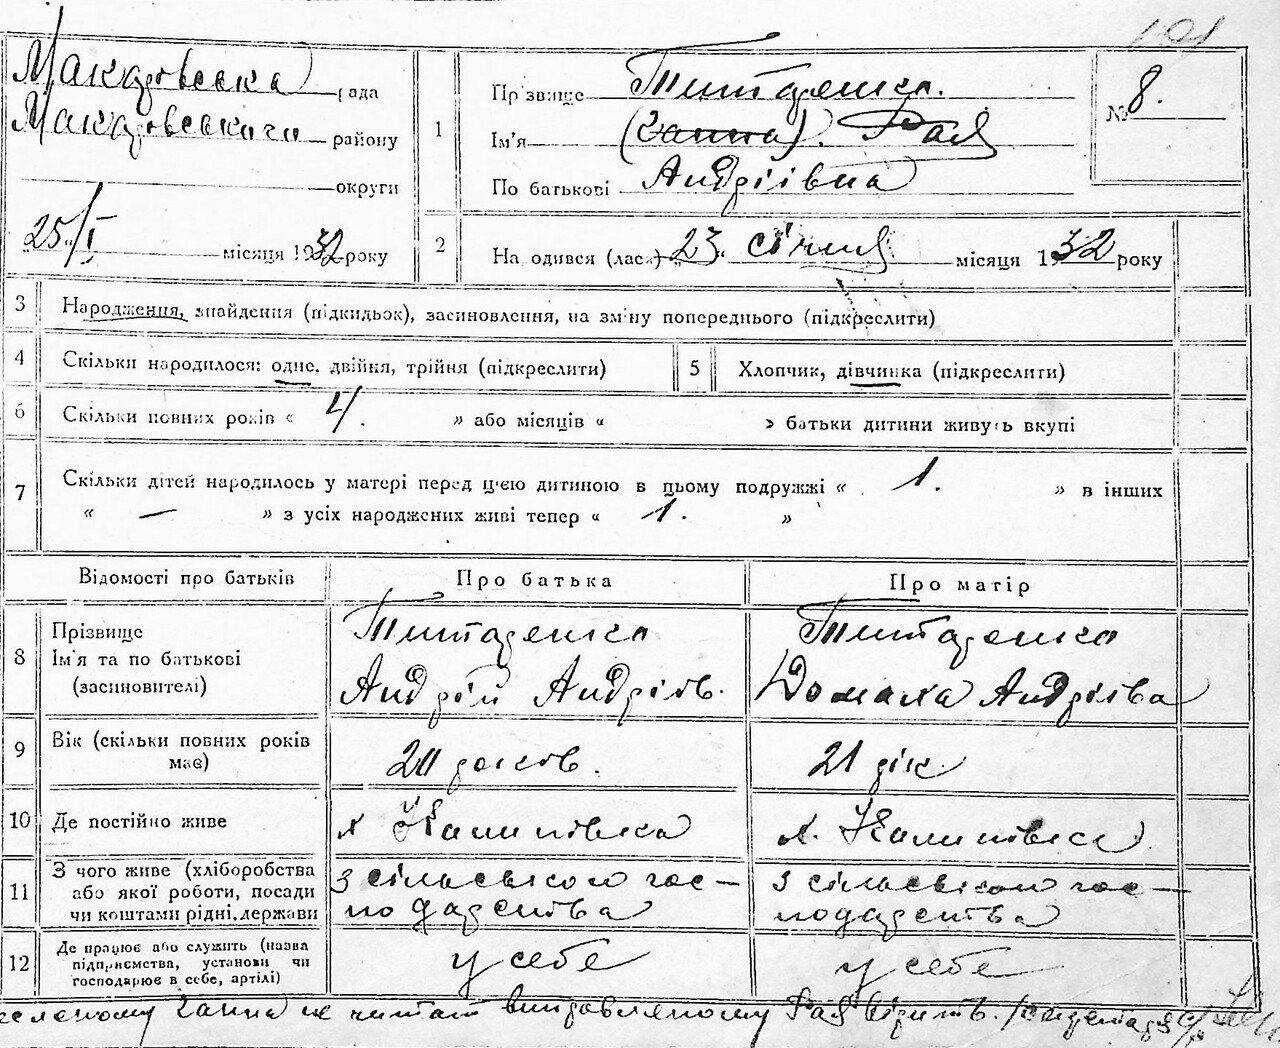 101
Макарівська рада
Макарівського району
округи
„25/I місяця 1932 року
1
Прізвище Титаренко.
Ім'я (Ганна). Рая
По батькові Андріївна
№ 8.
2
Народився (лася) „23„ січня місяця 1932 року
3 Народження, знайдення (підкидьок), засиновлення, на зміну попереднього (підкреслити)
4 Скільки народилося: одне, двійня, трійня (підкреслити)
5 Хлопчик, дівчинка (підкреслити)
6 Скільки повних років « 4. » або місяців « » батьки дитини живуть вкупі
7 Скільки дітей народилось у матері перед цією дитиною в цьому подружжі « 1. » в інших
« — » з усіх народжених живі тепер « 1. »
Відомості про батьків Про батька Про матір
8 Прізвище
Ім'я та по батькові
(засиновителі)
Титаренко
Андрій Андріїв.
Титаренко
Домаха Андріїва
9 Вік (скільки повних років
має)
років.
21 рік
10 Де постійно живе
х Калинівка
х. Калинівка
11 З чого живе (хліборобства
або якої роботи, посади
чи коштами рідні, держави
з сільського гос—
подарства
з сільського гос—
подарства
12 Де працює або служить (назва
підприємства, установи чи
господарює в себе, артілі)
у себе
у себе
Ганна не читати виправленому Рая вірити.